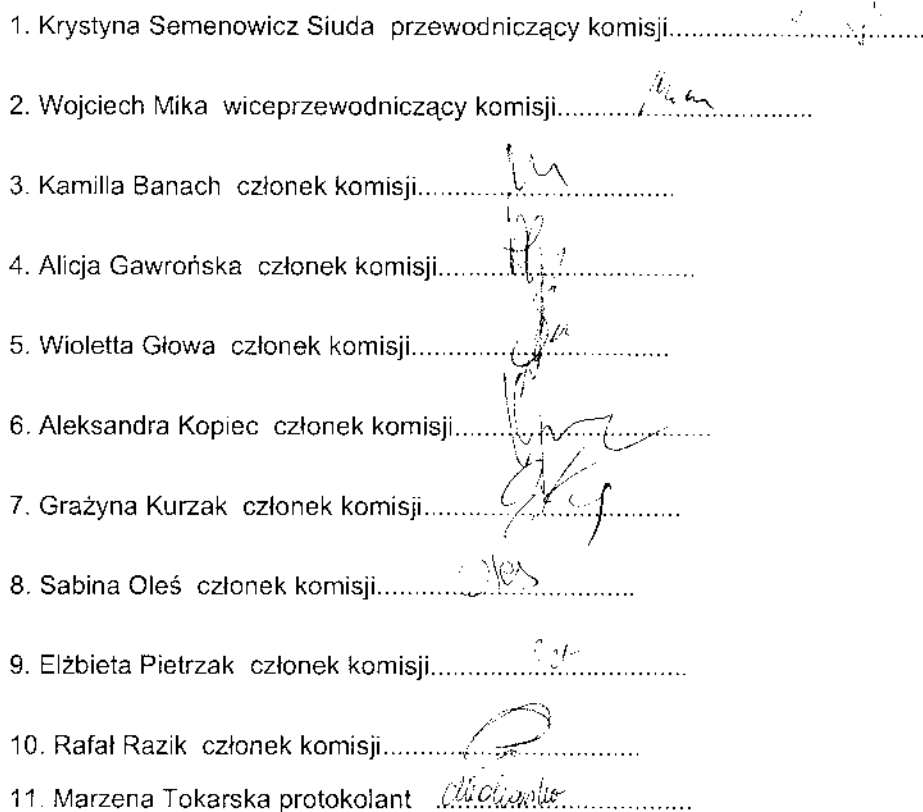 1. Krystyna Semenowicz Siuda  przewodniczący komisji....................................
2. Wojciech Mika  wiceprzewodniczący komisji....................................
3. Kamilla Banach  członek komisji....................................
4. Alicja Gawrońska  członek komisji....................................
5. Wioletta Głowa  członek komisji....................................
6. Aleksandra Kopiec  członek komisji....................................
7. Grażyna Kurzak  członek komisji....................................
8. Sabina Oleś  członek komisji....................................
9. Elżbieta Pietrzak  członek komisji....................................
10. Rafał Razik  członek komisji....................................
11. Marzena Tokarska protokolant  ....................................